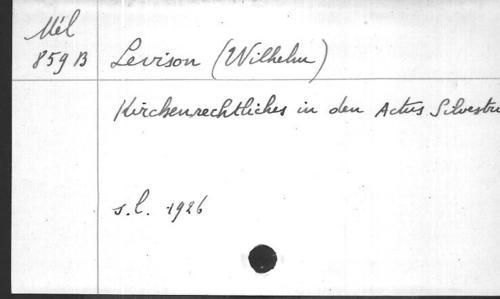 Mél
859 B Levison (Wilhelm)
Kirchenrechtliches in den Actus Silvestri
s.l. 1926